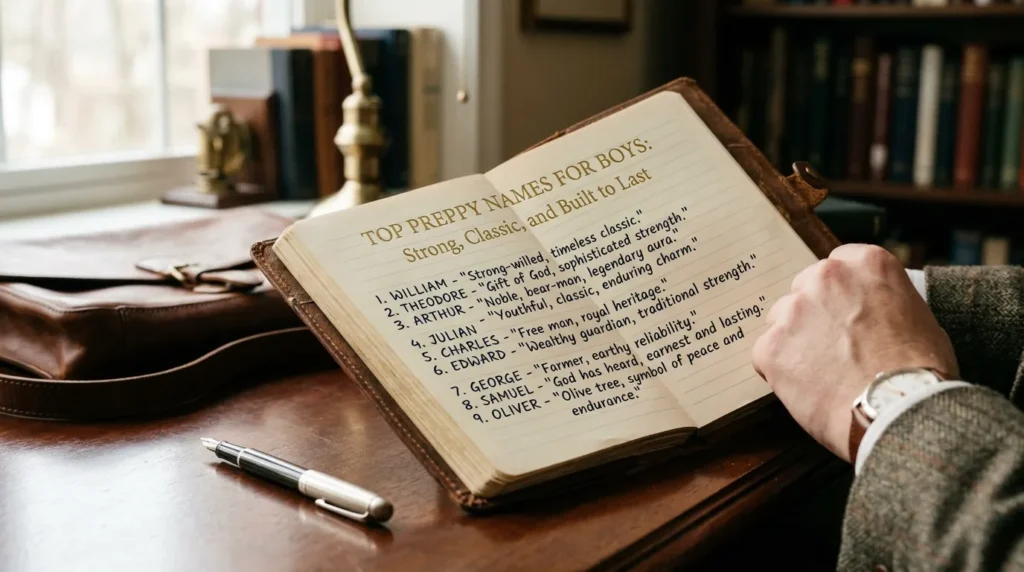 TOP PREPPY NAMES FOR BOYS:
Strong, Classic, and Built to Last
1. WILLIAM - "Strong-willed, timeless classic."
2. THEODORE - "Gift of God, sophisticated strength."
3. ARTHUR - "Noble, bear-man, legendary aura."
4. JULIAN - "Youthful, classic, enduring charm."
5. CHARLES - "Free man, royal heritage."
6. EDWARD - "Wealthy guardian, traditional strength."
7. GEORGE - "Farmer, earthy reliability."
8. SAMUEL - "God has heard, earnest and lasting."
9. OLIVER - "Olive tree, symbol of peace and
endurance."